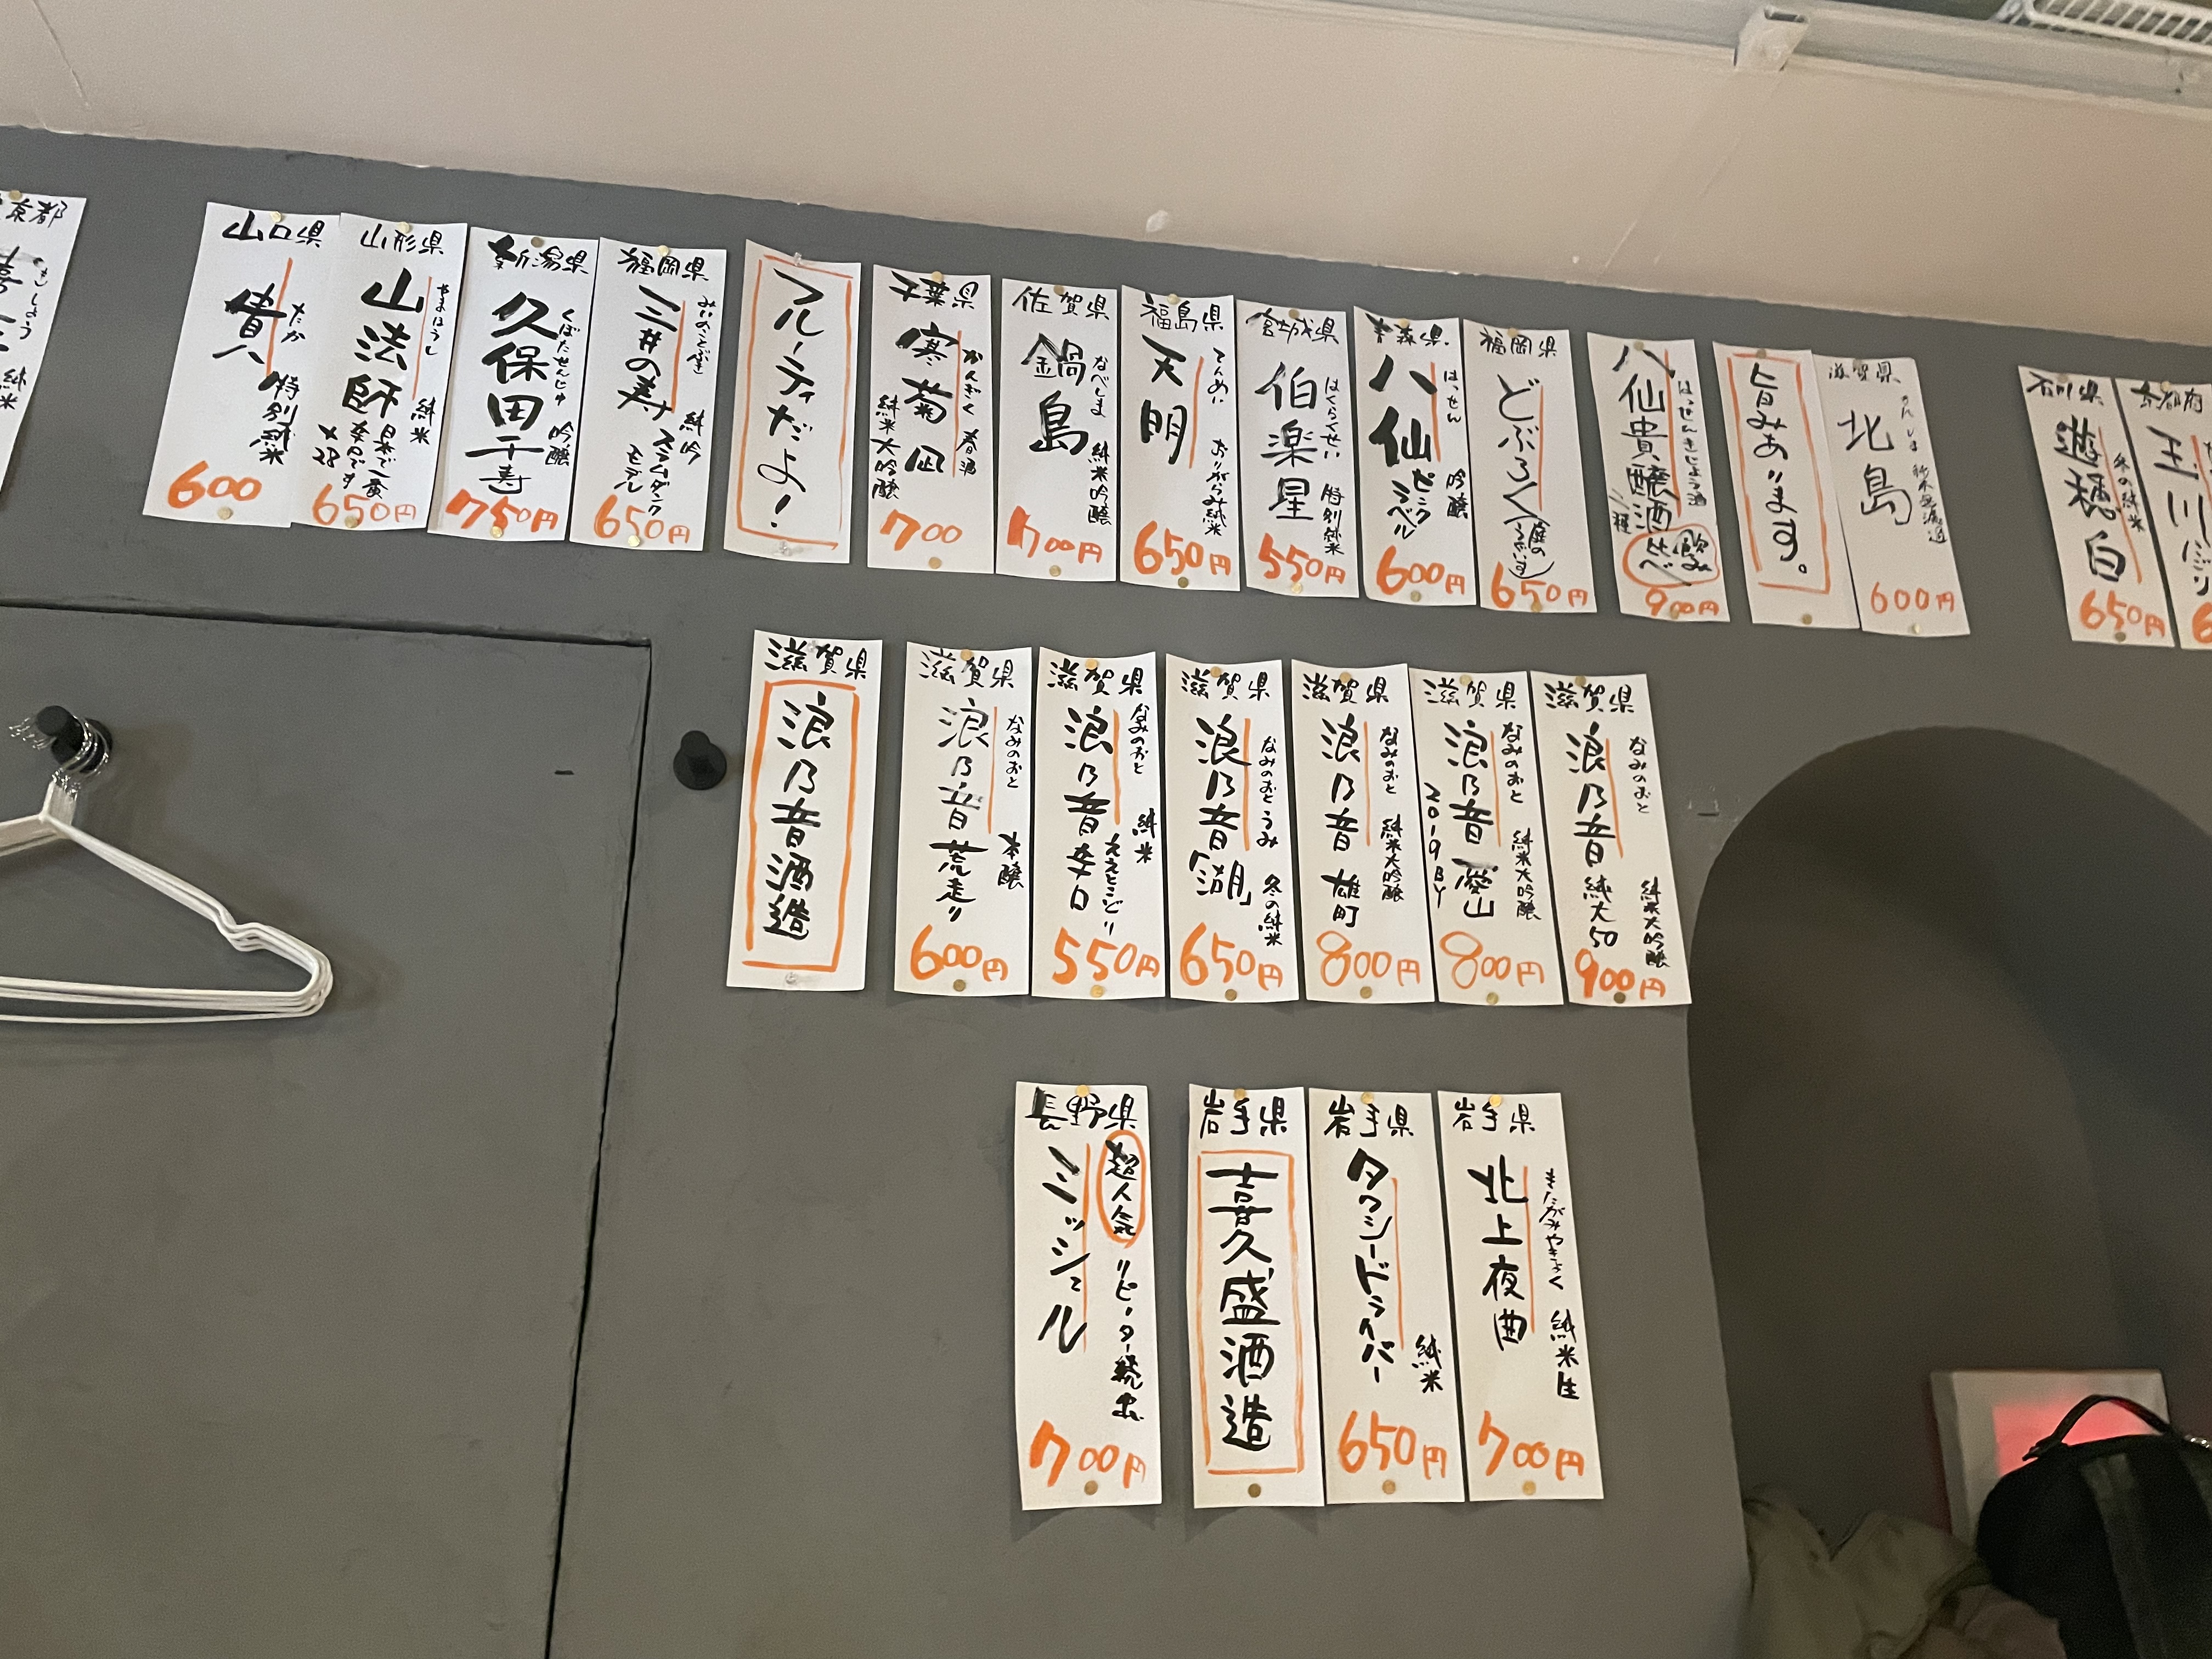 京都
純米
山口県
貴
たか
特別純米
600
山形県
山法師
やまほうし
純米
日本で一番
辛口です
+28
650円
新潟県
久保田千寿
くぼたせんじゅ
吟醸
750円
福岡県
三井の寿
みいのことぶき
純吟
スラムダンク
モデル
650円
フルーティだよ!
千葉県
寒菊
かんぎく
春酒
純米大吟醸
700
佐賀県
鍋島
なべしま
純米吟醸
700円
福島県
天明
てんめい
おりがらみ純米
650円
宮城県
伯楽星
はくらくせい
特別純米
550円
青森県
八仙
はっせん
吟醸
ピンク
ラベル
600円
福岡県
どぶろく
650円
八仙貴醸酒
はっせんきじょう酒
飲み
比べ
900円
旨みあります。
滋賀県
北島
600円
石川県
遊穂 白
冬の純米
650円
京都府
玉川
にごり
滋賀県
浪乃音酒造
滋賀県
浪乃音 荒走り
なみのおと
本醸
600円
滋賀県
浪乃音 辛口
なみのおと
純米
ええとこどり
550円
滋賀県
浪乃音「湖」
なみのおと うみ
冬の純米
650円
滋賀県
浪乃音 雄町
なみのおと
純米大吟醸
800円
滋賀県
浪乃音 愛山
なみのおと
純米大吟醸
2019BY
800円
滋賀県
浪乃音 純大50
なみのおと
純米大吟醸
900円
長野県
ミッシェル
超人気
リピーター続出
700円
岩手県
喜久盛酒造
岩手県
タクシードライバー
純米
650円
岩手県
北上夜曲
きたかみやきょく
純米生
700円